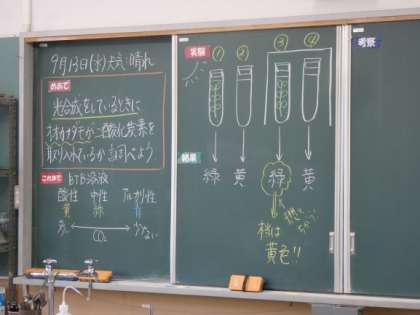 9月13日(水)天気:晴れ
めあて
光合成をしているときに
オオカナダモが二酸化炭素を
取り入れているか調べよう
これまで BTB溶液
酸性 中性 アルカリ性
黄 緑 青
多い CO₂ 少ない
実験 ① ② ③ ④
結果
緑 黄 緑 黄
本当は
黄色!!
考察